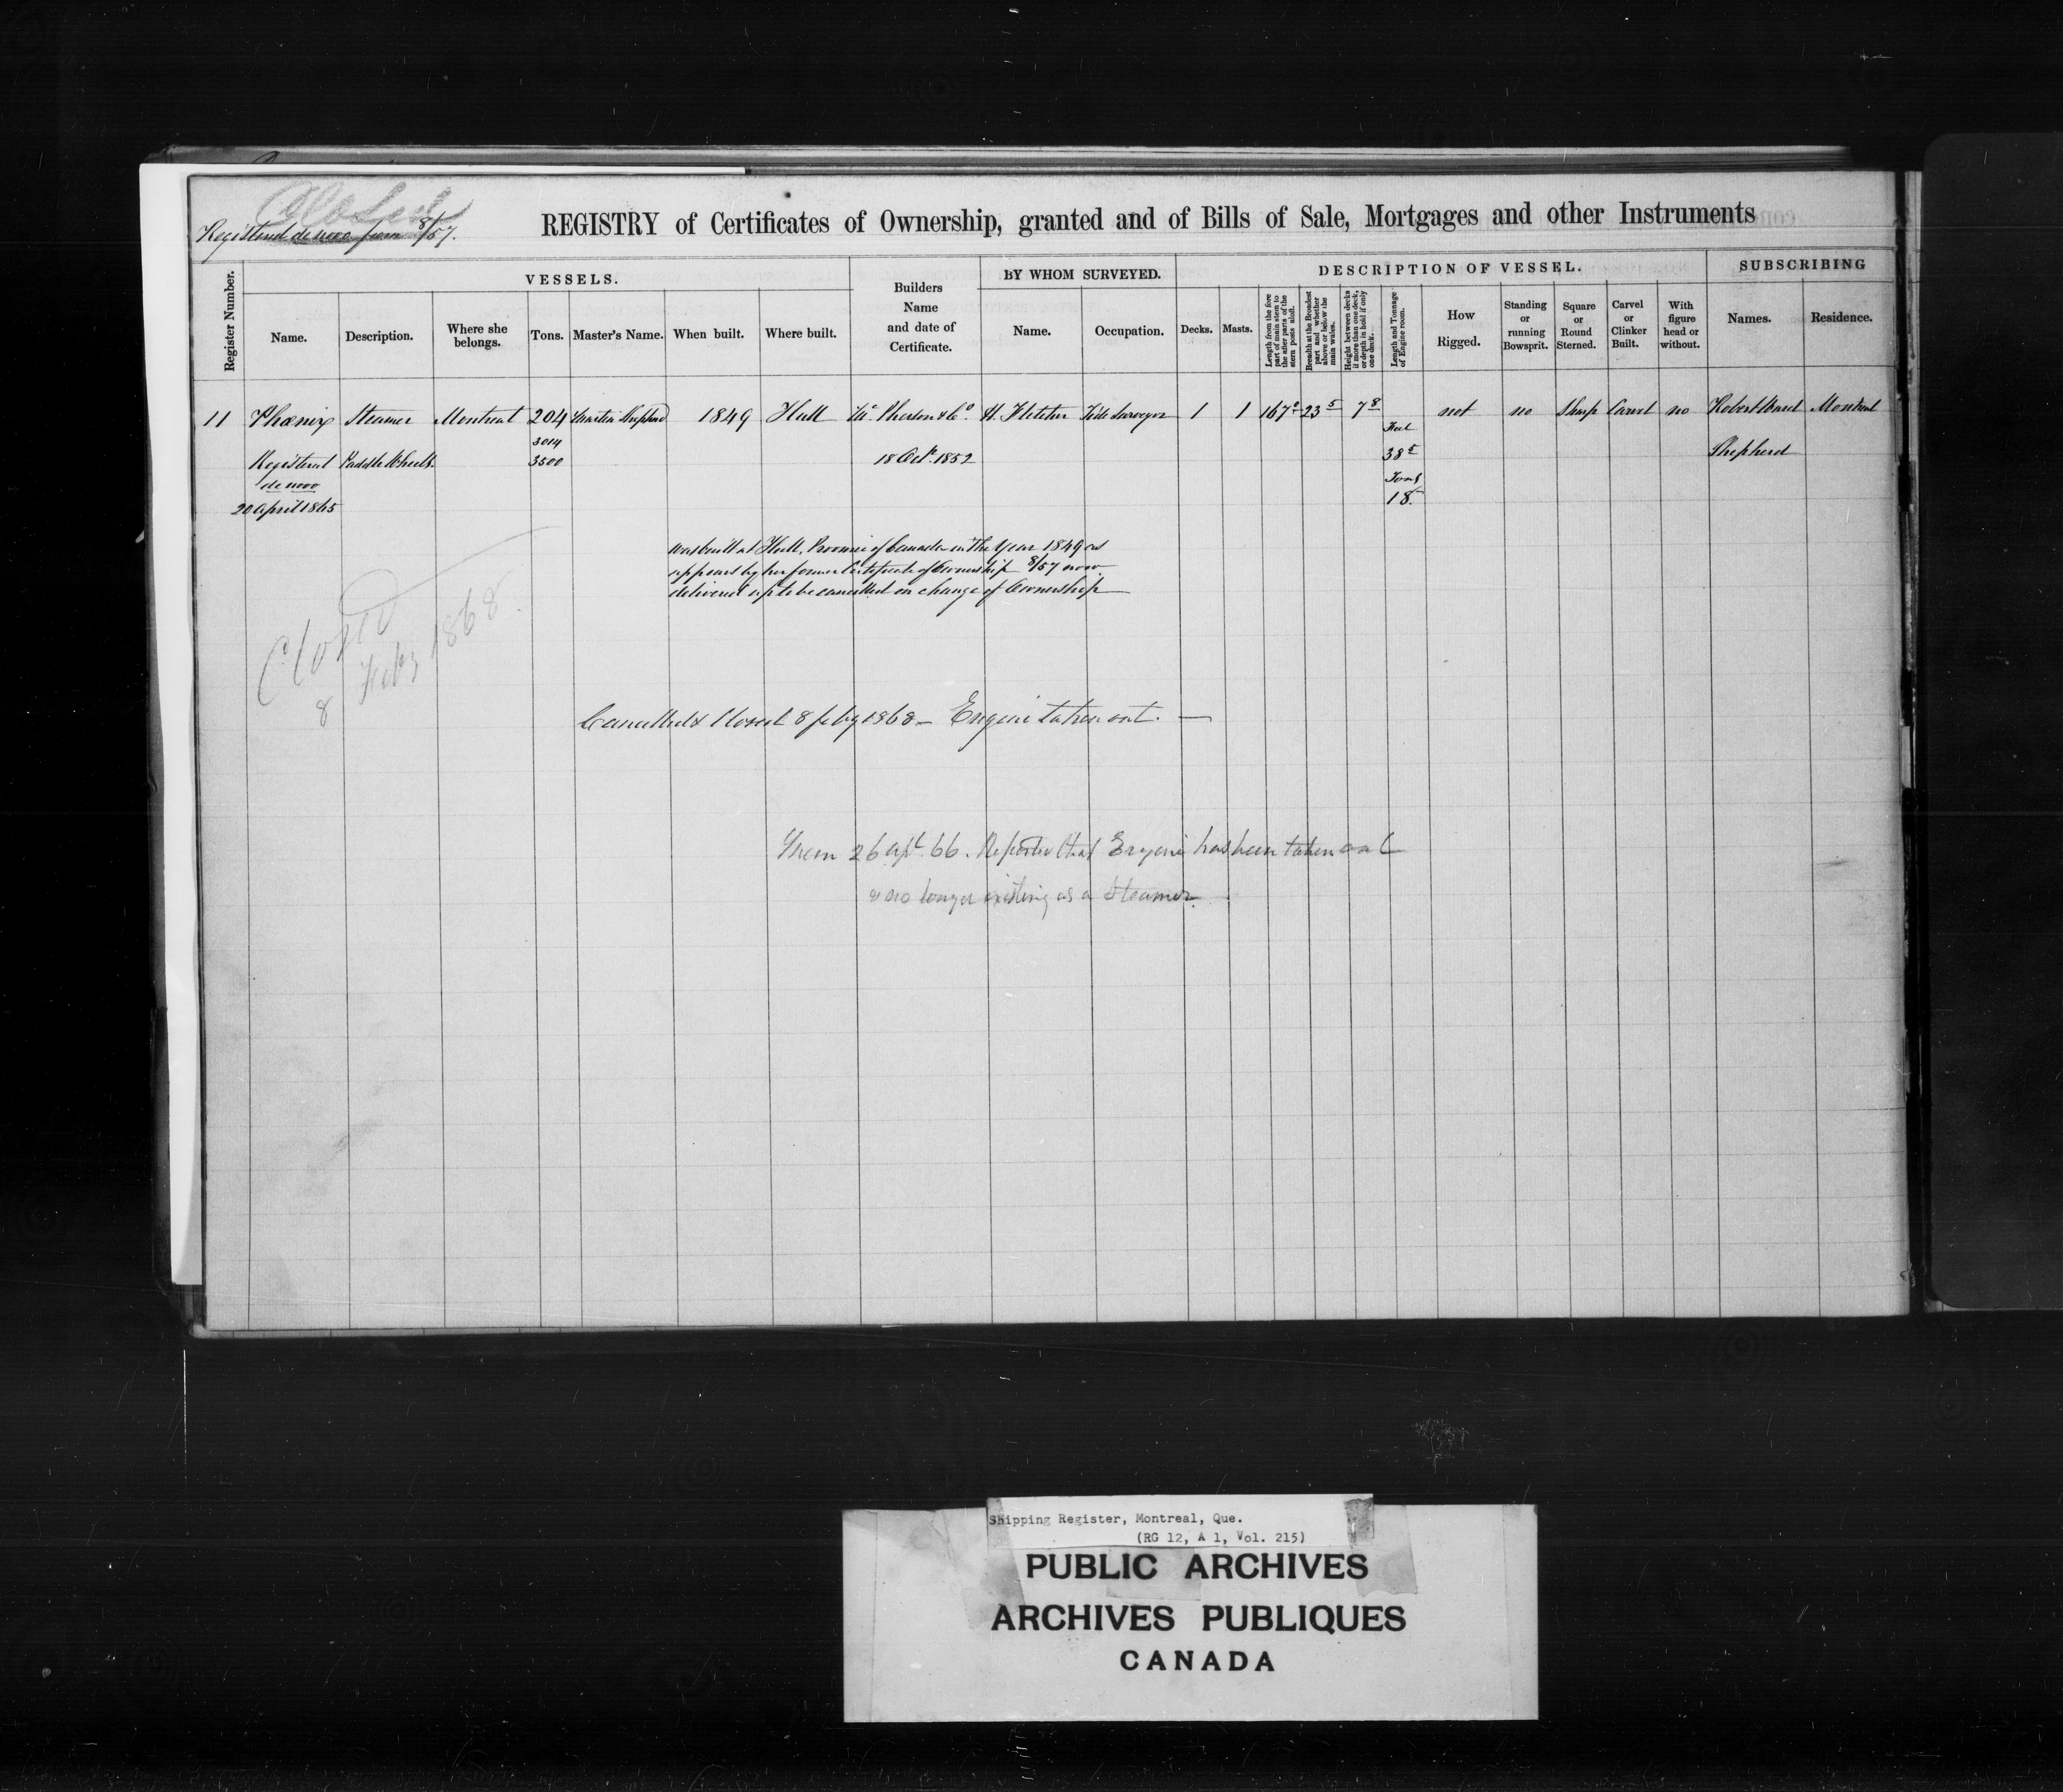 Closed
Registered de novo from 8/57.
REGISTRY of Certificates of Ownership, granted and of Bills of Sale, Mortgages and other Instruments
Register Number.
VESSELS.
Name.
Description.
Where she belongs.
Tons.
Master's Name.
When built.
Where built.
Builders Name and date of Certificate.
BY WHOM SURVEYED.
Name.
Occupation.
DESCRIPTION OF VESSEL.
Decks.
Masts.
Length from the fore part of main stem to the after parts of the stern posts aloft.
Breadth at the Broadest part and whether above or below the main wales.
Height between decks if more than one deck, or depth in hold if only one deck.
Length and Tonnage of Engine room.
How Rigged.
Standing or running Bowsprit.
Square or Round Sterned.
Carvel or Clinker Built.
With figure head or without.
SUBSCRIBING
Names.
Residence.
11 Phœnix Steamer Montreal 204 Martin Shepherd 1849 Hull Mc Pherson & Co. H. Fletcher Tide Surveyor 1 1 167 0 23 5 7 8 Feet not no Sharp Carvel no Robert Ward Montreal
3014
Registered Paddle Wheels. 3500 18 Oct. 1852 38 5 Shepherd
de novo Tons
20 April 1865 18.
was built at Hull, Province of Canada in the Year 1849 as
appears by her former Certificate of Ownership 8/57 now
delivered up to be cancelled on change of Ownership
Closed
8 Feby 1868.
Cancelled & Closed 8 feby 1868 — Engine taken out. —
26 Apl. 66. Reported that Engine has been taken out
& no longer existing as a Steamer.
Shipping Register, Montreal, Que.
(RG 12, A 1, Vol. 215)
PUBLIC ARCHIVES
ARCHIVES PUBLIQUES
CANADA